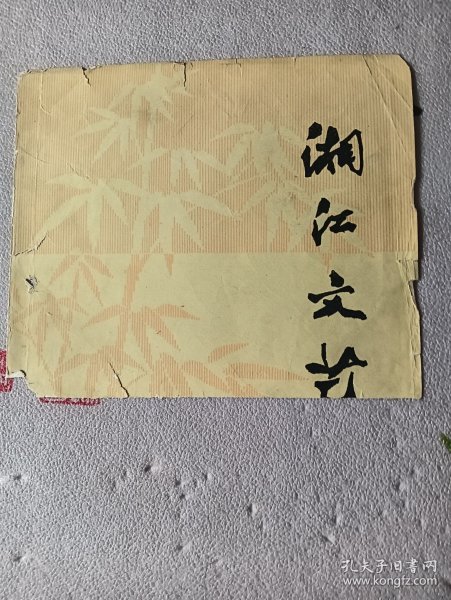 湘江文
孔夫子旧书网
www.kongfz.com